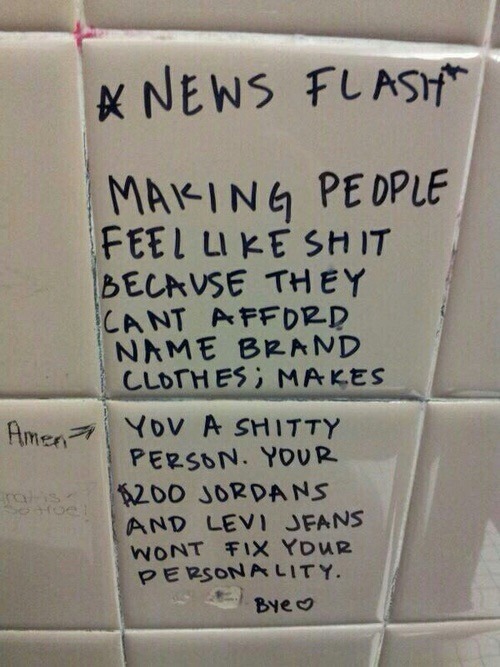 * NEWS FLASH*
MAKING PEOPLE
FEEL LIKE SHIT
BECAUSE THEY
CANT AFFORD
NAME BRAND
CLOTHES; MAKES
YOU A SHITTY
PERSON. YOUR
$200 JORDANS
AND LEVI JEANS
WONT FIX YOUR
PERSONALITY.
Bye♡
Amen→
so true!